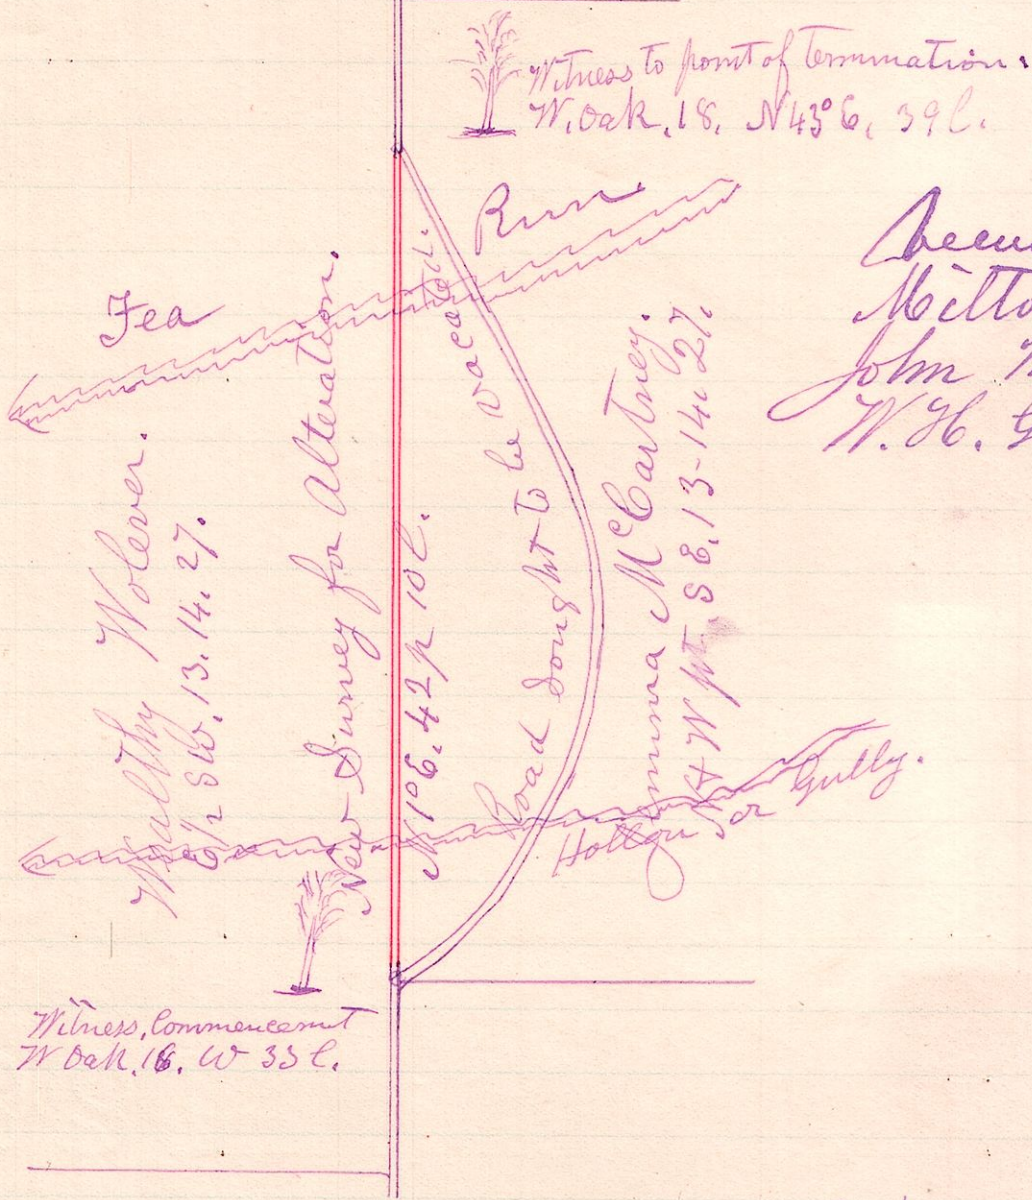 Witness to point of Termination.
W. Oak. 18. N 43° E, 39 l.
Run
Fea
Milto
John
W. H. G
Wealthy Wolever.
E 1/2 SW. 13. 14. 27.
New Survey for Alteration.
N 1° E. 42 p 10 l.
Road Sought to be Vacated.
McCartney.
N W pt. S E. 13-14. 27.
Hollow or Gully.
Witness, Commencement
W Oak. 18. W 33 l.